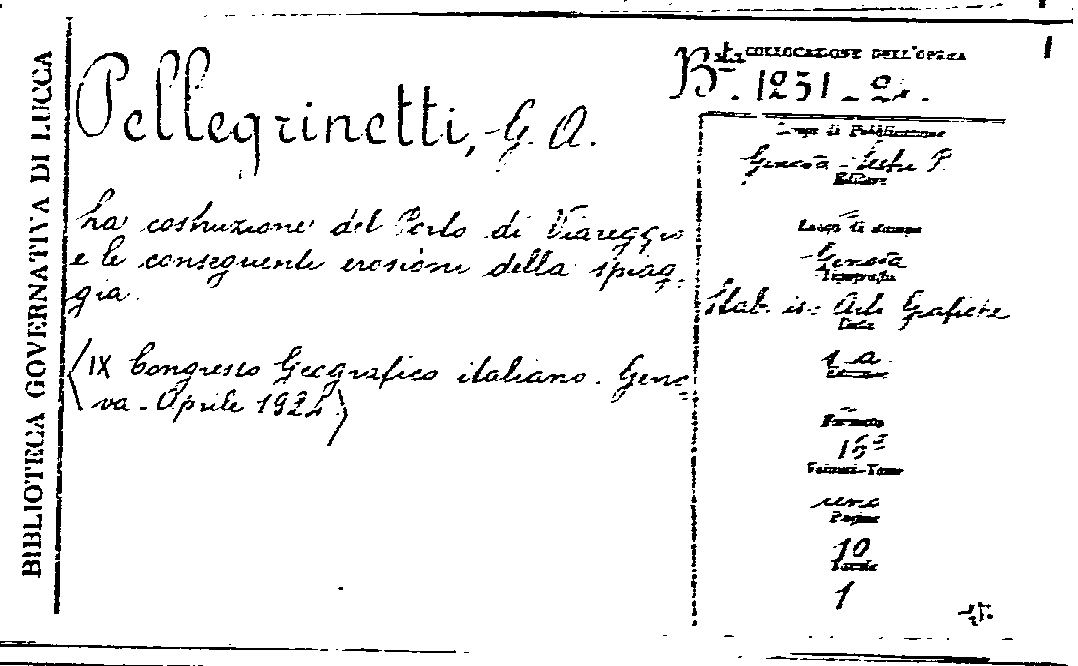 BIBLIOTECA GOVERNATIVA DI LUCCA
Pellegrinetti, G. A.
La costruzione del Porto di Viareggio
e le conseguenti erosioni della spiag-
gia.
(IX Congresso Geografico italiano. Geno-
va - Aprile 1924)
COLLOCAZIONE DELL'OPERA
Bta. 1231 - 2.
Luogo di Pubblicazione
Genova - Sestri P.
Editore
Luogo di stampa
Genova
Tipografia
Stab. it. Arti Grafiche
Data
s. a.
Edizione
Formato
16º
Volumi-Tomi
uno
Pagine
10
Tavole
1